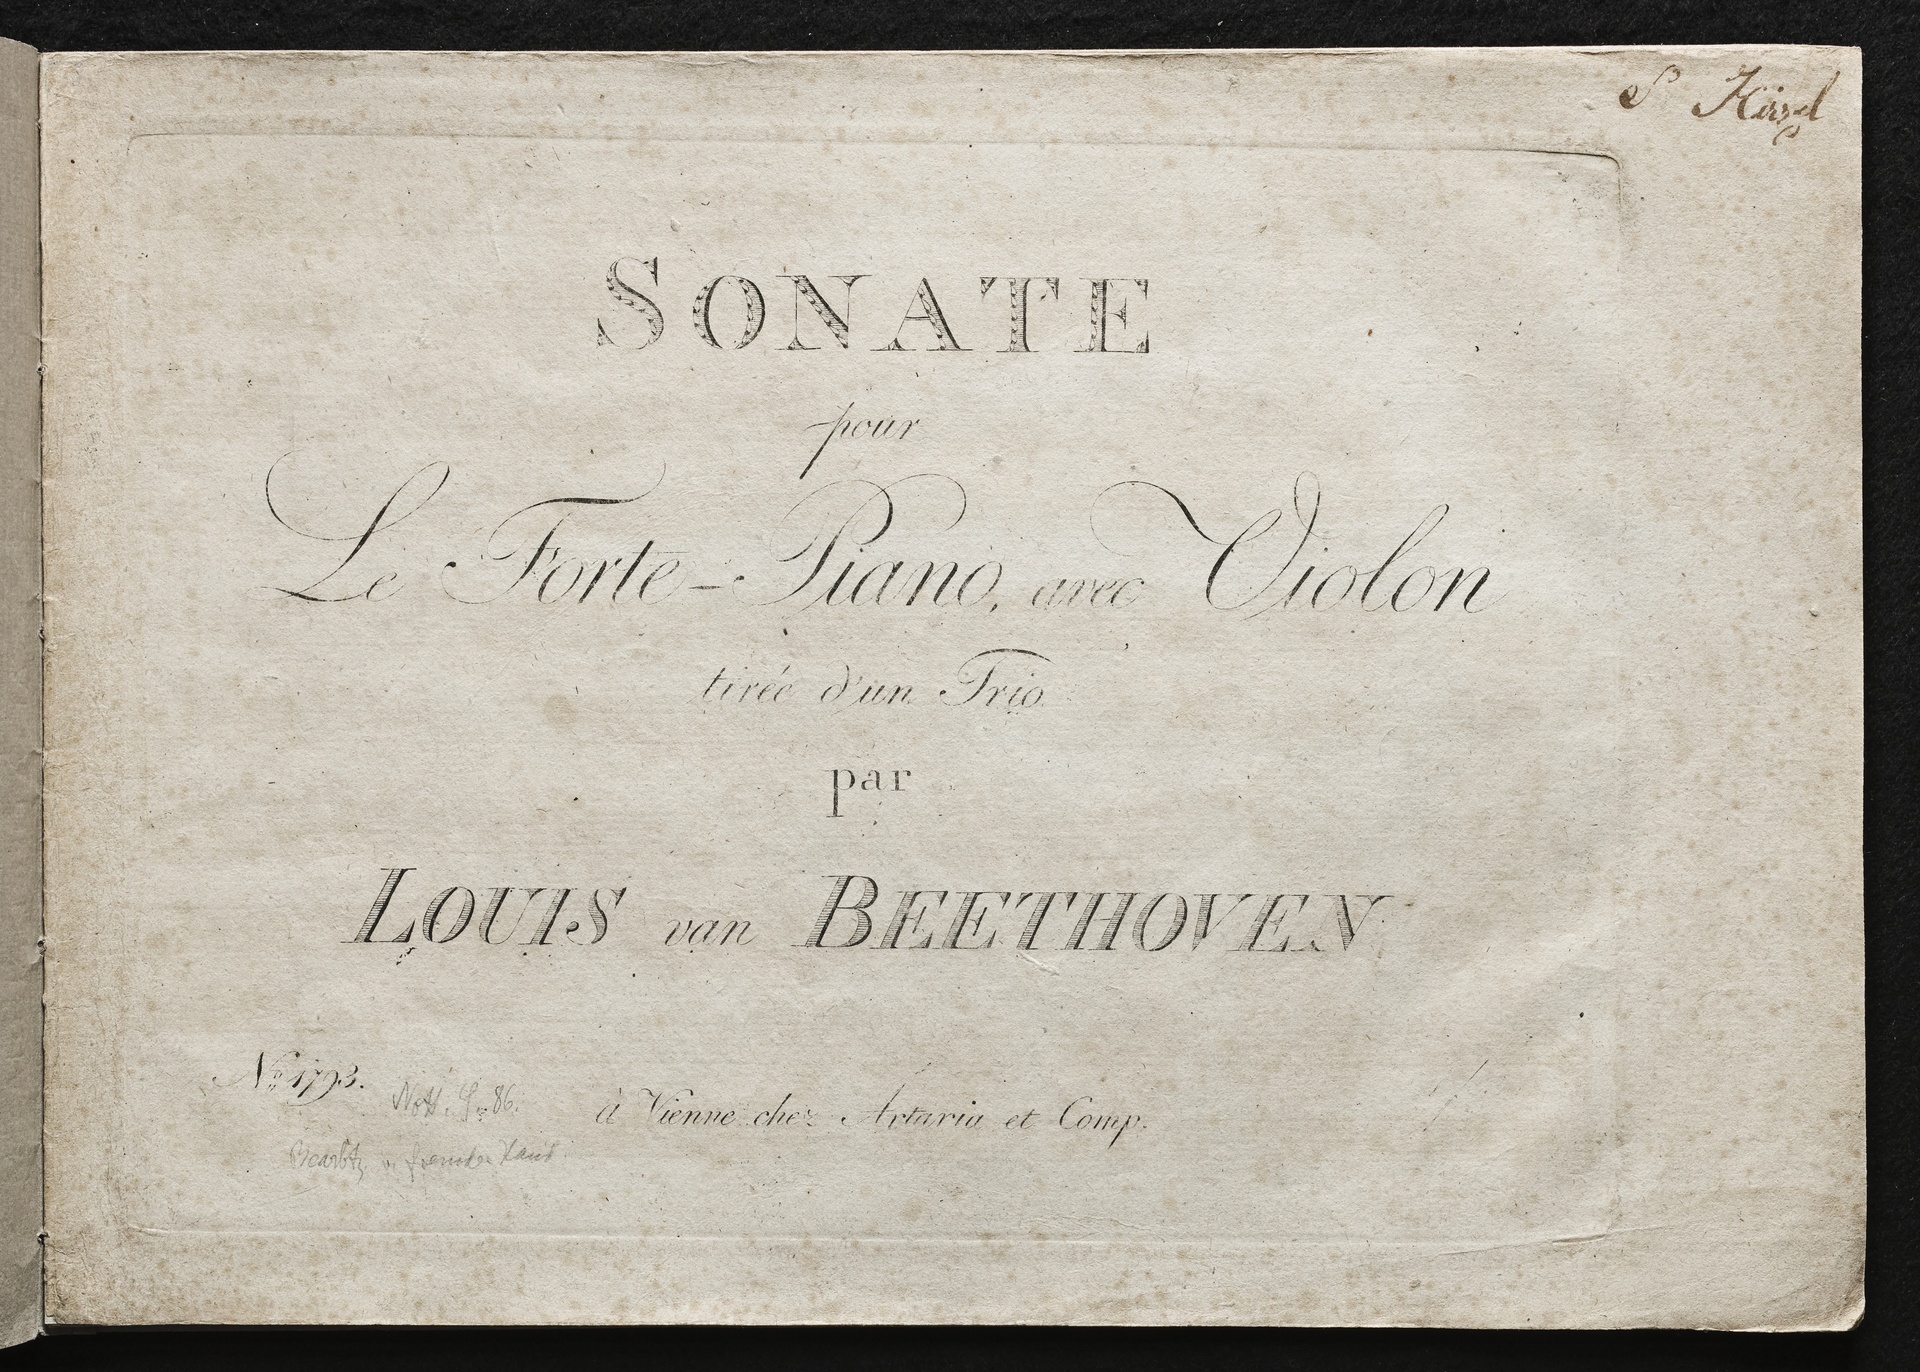 S Hirzel
SONATE
pour
Le Forte-Piano, avec Violon
tirée d'un Trio
par
LOUIS van BEETHOVEN
No. 1793.
Nott. S. 86.
à Vienne chez Artaria et Comp.
Bearbtg v. fremder Hand.